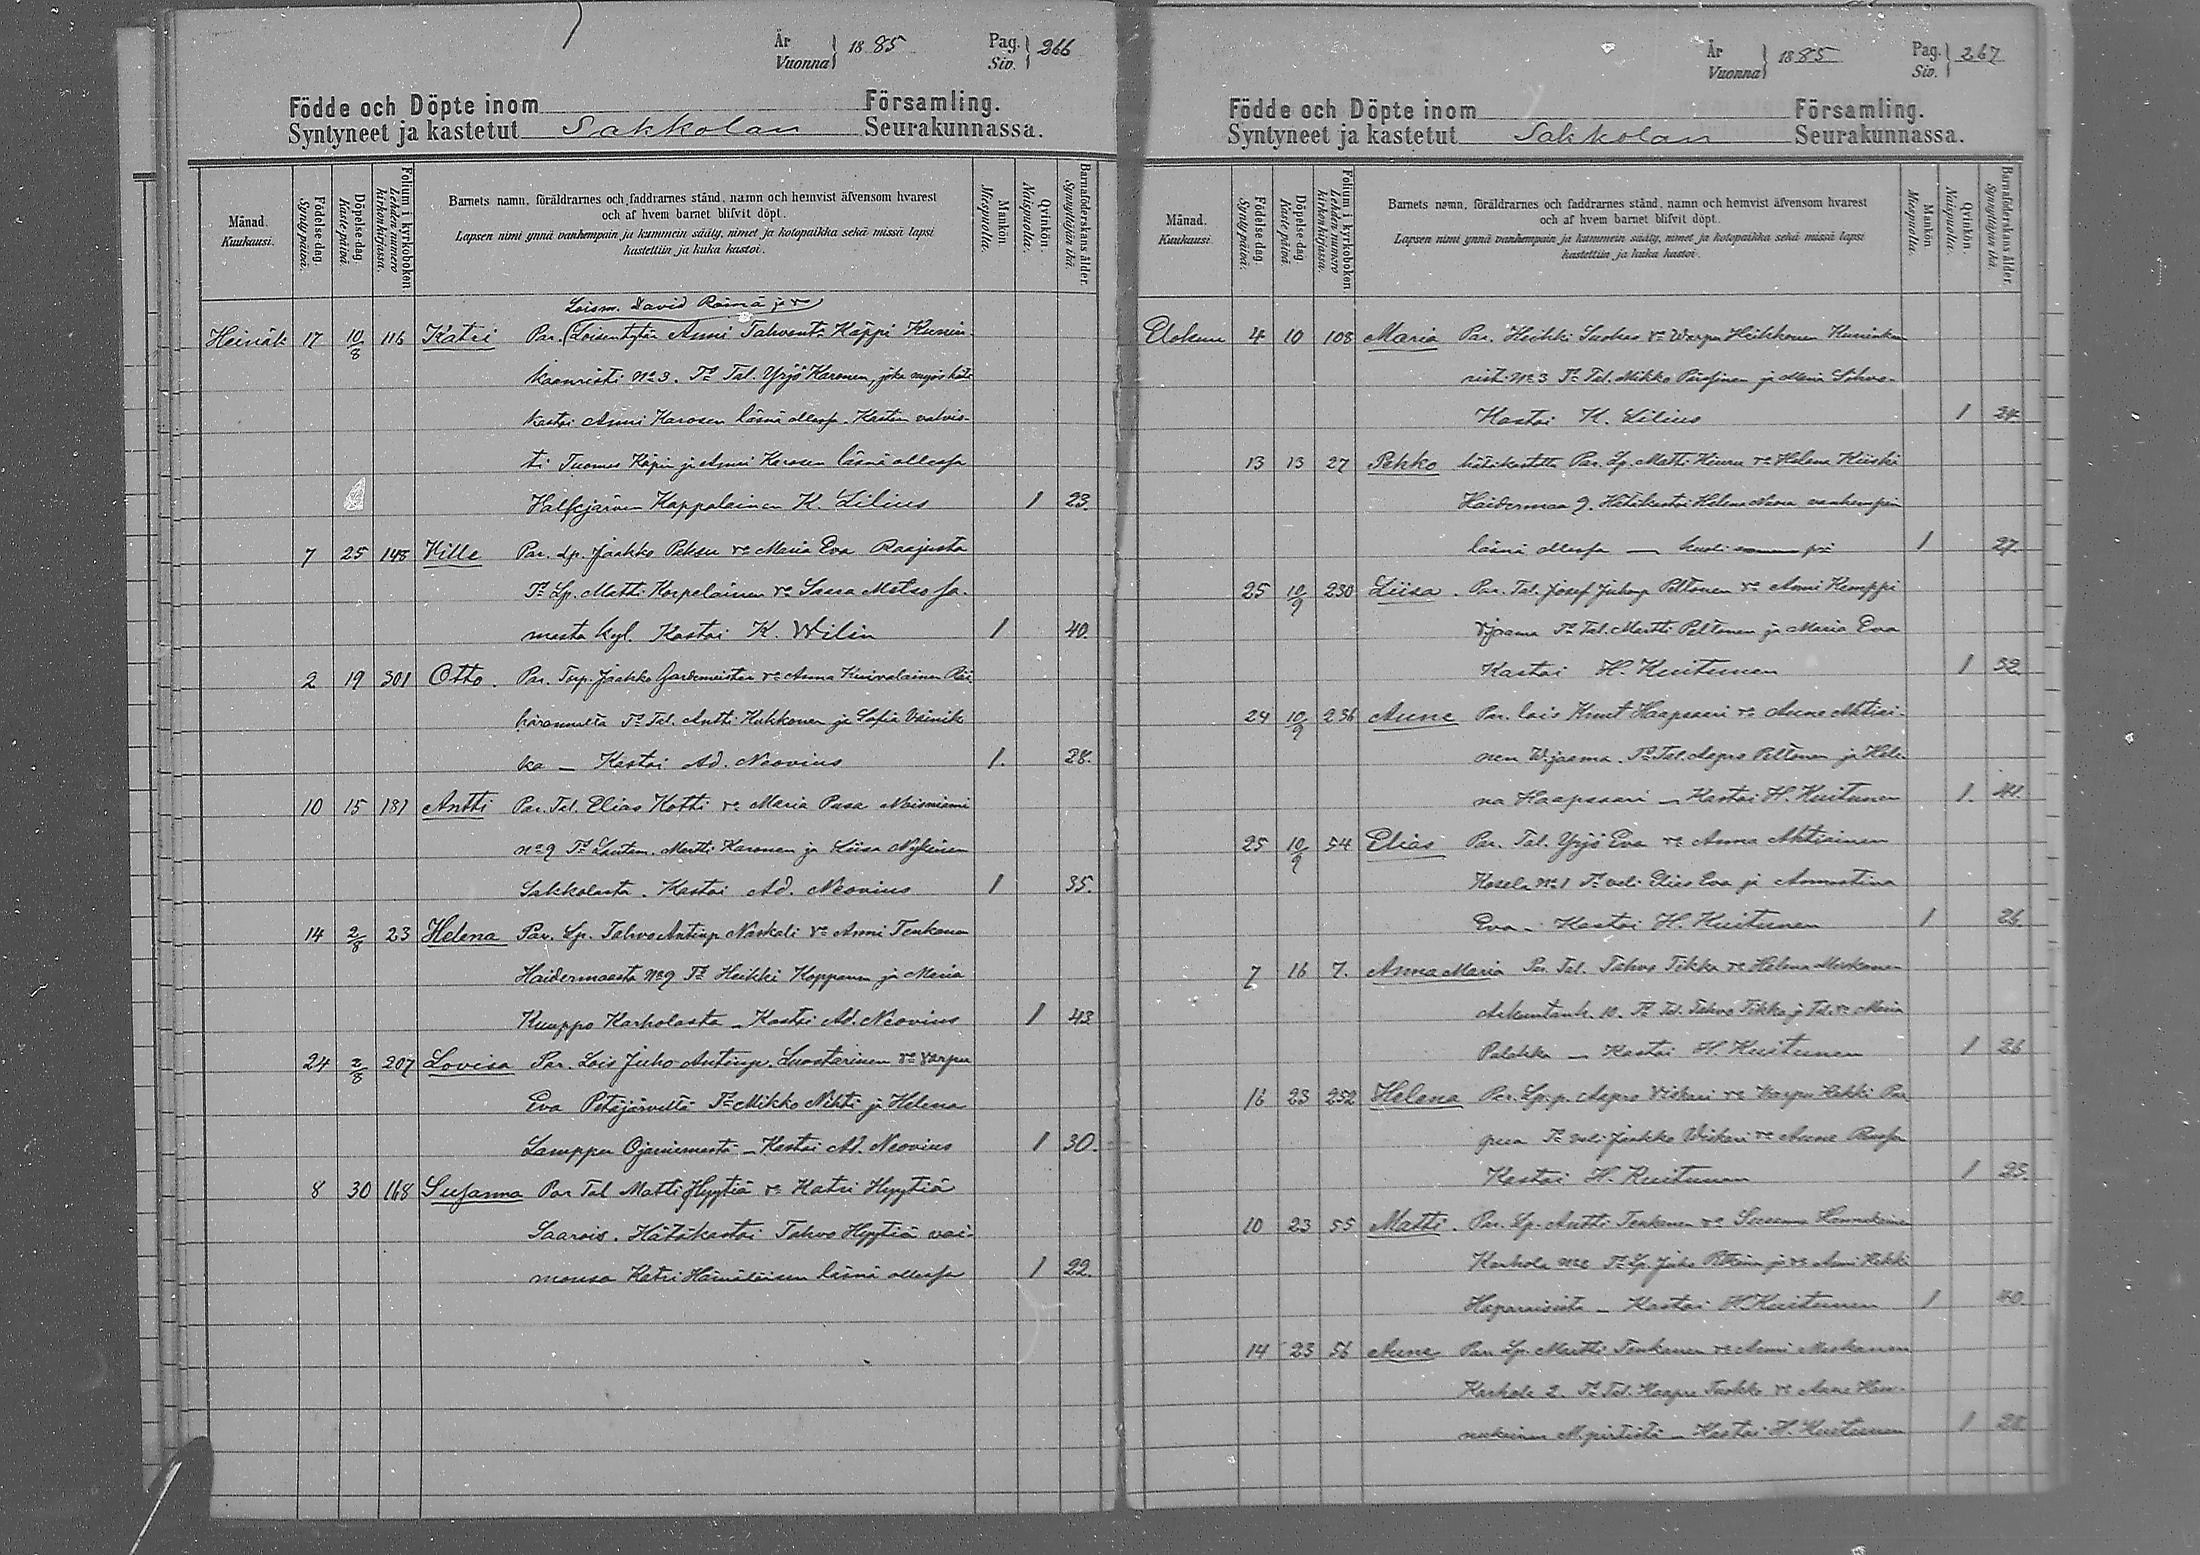 År
Vuonna } 1885
Pag.
Siv. } 266
Födde och Döpte inom Församling.
Syntyneet ja kastetut Sakkolan Seurakunnassa.
Månad.
Kuukausi.
Födelse-dag.
Synty päivä.
Döpelse-dag.
Kaste päivä.
Folium i kyrkoboken
Lehden numero kirkonkirjassa.
Barnets namn, föräldrarnes och faddrarnes stånd, namn och hemvist äfvensom hvarest
och af hvem barnet blifvit döpt.
Lapsen nimi ynnä vanhempain ja kummein sääty, nimet ja kotopaikka sekä missä lapsi
kastettiin ja kuka kastoi.
Mankön.
Miespuolia.
Qvinkön.
Naispuolia.
Barnaföderskans ålder.
Synnyttäjän ikä.
Loism. David Räinä ja vo
Heinäk 17 10/8 116 Katri Par. (Loisentytär Anni Tahvont. Käppi Kunin-
kaanristi No 3. To Tal. Yrjö Karonen, joka myös hätä
kastoi Anni Karosen läsnä ollessa. Kasten vahvis-
ti Tuomas Käpin ja Anni Karosen läsnä ollessa
Valkjärven Kappalainen K. Lilius 1 23.
7 25 148 Ville Par. Lp. Jaakko Peksu vo Maria Eva Raajusta
To Lp. Matti Korpelainen vo Saara Metso Ja-
masta kyl. Kastoi K. Wilin 1 40.
2 19 301 Otto. Par. Tup. Jaakko Gardemeister vo Anna Kuivalainen
To Tal. Antti Kukkonen ja Sofia Väinik-
ka — Kastoi Ad. Neovius 1. 28.
10 15 181 Antti Par. Tal. Elias Kotti vo Maria Pusa Noisniemi
No 9 To Lautam. Martti Karonen ja Liisa Nykänen
Sakkolasta. Kastoi Ad. Neovius 1 35.
14 2/8 23 Helena Par. Lp. Tahvo Antinp. Naskali vo Anni Tenkanen
Haidermaasta No 9 To Heikki Kopponen ja Maria
Kuuppo Karholasta — Kastoi Ad. Neovius 1 43
24 2/8 207 Lovisa Par. Lois Juho Antinp. Luostarinen vo Varpu
Eva Petäjärveltä To Mikko Nihti ja Helena
Lamppu Ojaniemestä — Kastoi Ad. Neovius 1 30.
8 30 168 Susanna Par Tal Matti Hyytiä vo Katri Hyytiä
Saarois. Hätäkastoi Tahvo Hyytiä vai-
monsa Katri Hämäläisen läsnä ollessa 1 22.
År
Vuonna } 1885
Pag.
Siv. } 267
Födde och Döpte inom Församling.
Syntyneet ja kastetut Sakkolan Seurakunnassa.
Månad.
Kuukausi.
Födelse-dag.
Synty päivä.
Döpelse-dag.
Kaste päivä.
Folium i kyrkoboken
Lehden numero kirkonkirjassa.
Barnets namn, föräldrarnes och faddrarnes stånd, namn och hemvist äfvensom hvarest
och af hvem barnet blifvit döpt.
Lapsen nimi ynnä vanhempain ja kummein sääty, nimet ja kotopaikka sekä missä lapsi
kastettiin ja kuka kastoi.
Mankön.
Miespuolia.
Qvinkön.
Naispuolia.
Barnaföderskans ålder.
Synnyttäjän ikä.
Elokuu 4 10 108 Maria Par. Heikki Suokas vo Warpu Heikkonen Kuninkaan
rist. No 3 To Tal. Mikko ja Maria
Kastoi K. Lilius 1 24.
13 13 27 Pekko hätäkastettu Par. Lp. Matti Kiuru vo Helena Kiiski
Haidermaa 9. Hätäkastoi Helena vanhempain
läsnä ollessa — kuoli 1 27.
25 10/9 230 Liisa. Par. Tal. Josef Juhonp Peltonen vo Anni Kemppi
To Tal. Martti Peltonen ja Maria Eva
Kastoi H. Kuitunen 1 32
24 10/9 236 Aune Par. lois Knut Haapsaari vo Anna Ahtiai-
nen To Tal. Aapro Peltonen ja Hele-
na Haapsaari — Kastoi H. Kuitunen 1. 44.
25 10/9 54 Elias Par. Tal. Yrjö Eva vo Anna Ahtiainen
Kosela No 1 To veli Elias Eva ja Annastina
Eva — Kastoi H. Kuitunen 1 26.
7 16 7. Anna Maria Par Tal. Tahvo Tikka vo Helena
10. To Tal. Tahvo Tikka ja Tal. vo Maria
Kastoi H. Kuitunen 1 26
16 23 252 Helena Par. Lp. p. Aapro Viskari vo Varpu Kekki
To veli Jaakko Wiskari vo Anna
Kastoi H. Kuitunen 1 25.
10 23 55 Matti. Par. Lp. Antti Tenkanen vo Susanna
Karhola No 2 To Lp. Juho ja vo Anni Kekki
Haparaisista — Kastoi H. Kuitunen 1 40.
14 23 56 Aune Par. Lp. Martti Tenkanen vo Anni
Karhola 2. To Tal. vo Anna
Kastoi H. Kuitunen 1 28.